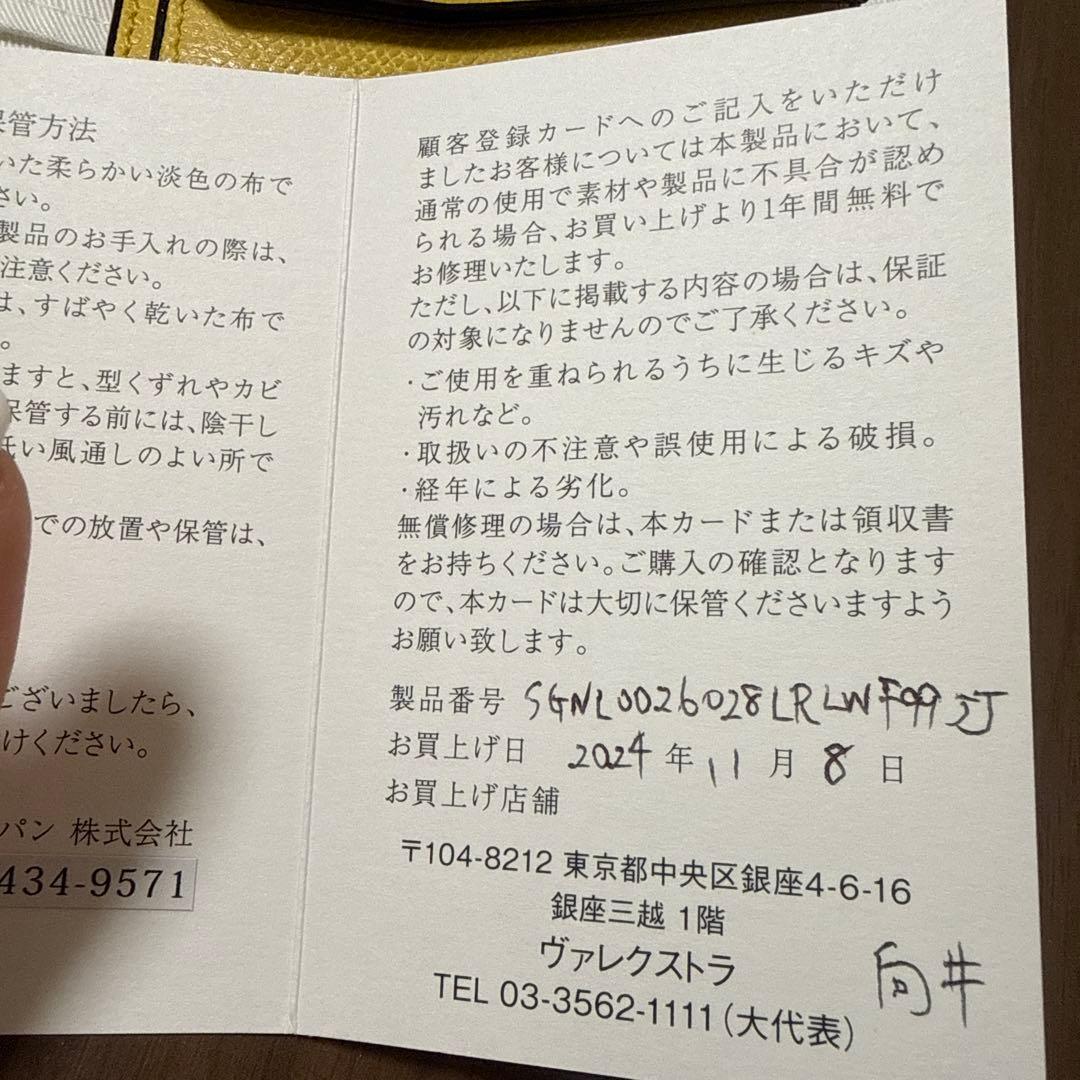 保管方法
いた柔らかい淡色の布で
さい。
製品のお手入れの際は、
注意ください。
は、すばやく乾いた布で
。
ますと、型くずれやカビ
保管する前には、陰干し
低い風通しのよい所で
での放置や保管は、
ございましたら、
けください。
パン 株式会社
434-9571
顧客登録カードへのご記入をいただけ
ましたお客様については本製品において、
通常の使用で素材や製品に不具合が認め
られる場合、お買い上げより1年間無料で
お修理いたします。
ただし、以下に掲載する内容の場合は、保証
の対象になりませんのでご了承ください。
・ご使用を重ねられるうちに生じるキズや
汚れなど。
・取扱いの不注意や誤使用による破損。
・経年による劣化。
無償修理の場合は、本カードまたは領収書
をお持ちください。ご購入の確認となります
ので、本カードは大切に保管くださいますよう
お願い致します。
製品番号 SGNL0026028LRLWF99JJ
お買上げ日 2024年11月8日
お買上げ店舗
〒104-8212 東京都中央区銀座4-6-16
銀座三越 1階
ヴァレクストラ
TEL 03-3562-1111(大代表)
向井